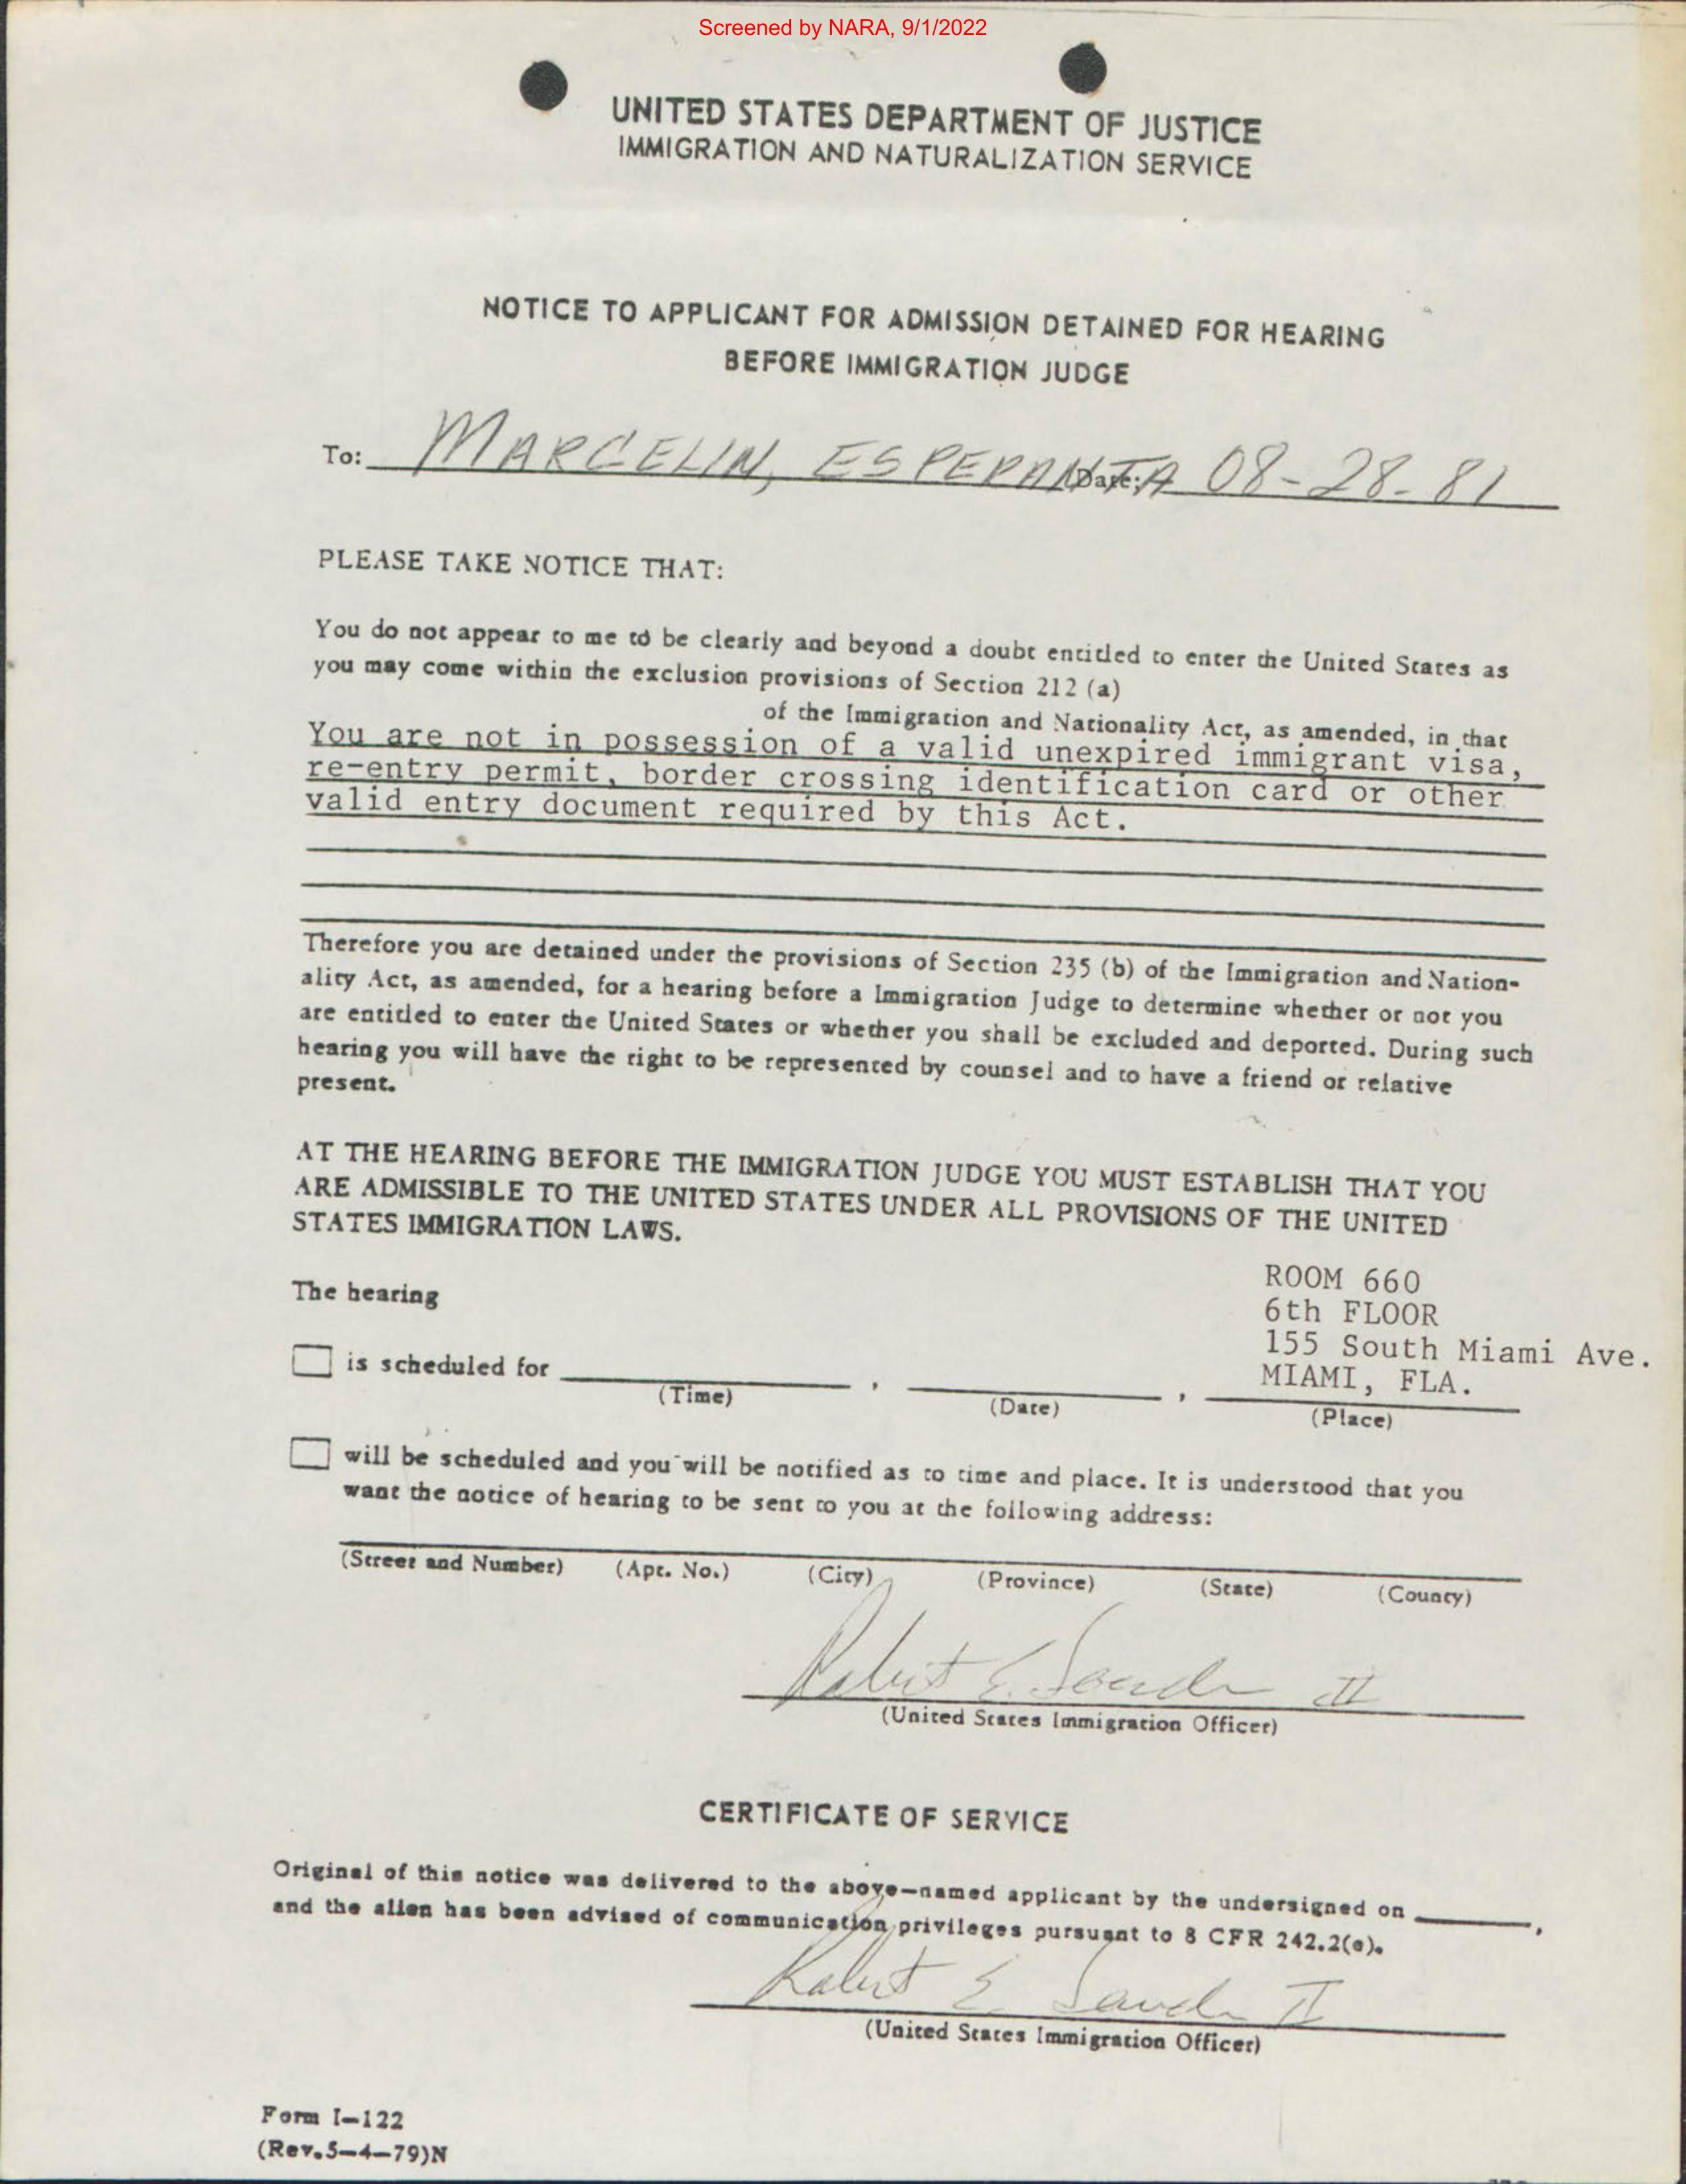 Screened by NARA, 9/1/2022
UNITED STATES DEPARTMENT OF JUSTICE
IMMIGRATION AND NATURALIZATION SERVICE
NOTICE TO APPLICANT FOR ADMISSION DETAINED FOR HEARING
BEFORE IMMIGRATION JUDGE
To: MARCELIN, ESPERANTA Date: 08-28-81
PLEASE TAKE NOTICE THAT:
You do not appear to me to be clearly and beyond a doubt entitled to enter the United States as
you may come within the exclusion provisions of Section 212 (a)
of the Immigration and Nationality Act, as amended, in that
You are not in possession of a valid unexpired immigrant visa,
re-entry permit, border crossing identification card or other
valid entry document required by this Act.
Therefore you are detained under the provisions of Section 235 (b) of the Immigration and Nation-
ality Act, as amended, for a hearing before a Immigration Judge to determine whether or not you
are entitled to enter the United States or whether you shall be excluded and deported. During such
hearing you will have the right to be represented by counsel and to have a friend or relative
present.
AT THE HEARING BEFORE THE IMMIGRATION JUDGE YOU MUST ESTABLISH THAT YOU
ARE ADMISSIBLE TO THE UNITED STATES UNDER ALL PROVISIONS OF THE UNITED
STATES IMMIGRATION LAWS.
The hearing
ROOM 660
6th FLOOR
155 South Miami Ave.
MIAMI, FLA.
is scheduled for , ,
(Time) (Date) (Place)
will be scheduled and you will be notified as to time and place. It is understood that you
want the notice of hearing to be sent to you at the following address:
(Street and Number) (Apt. No.) (City) (Province) (State) (County)
Robert E. II
(United States Immigration Officer)
CERTIFICATE OF SERVICE
Original of this notice was delivered to the above-named applicant by the undersigned on ,
and the alien has been advised of communication privileges pursuant to 8 CFR 242.2(e).
Robert E II
(United States Immigration Officer)
Form I-122
(Rev.5-4-79)N